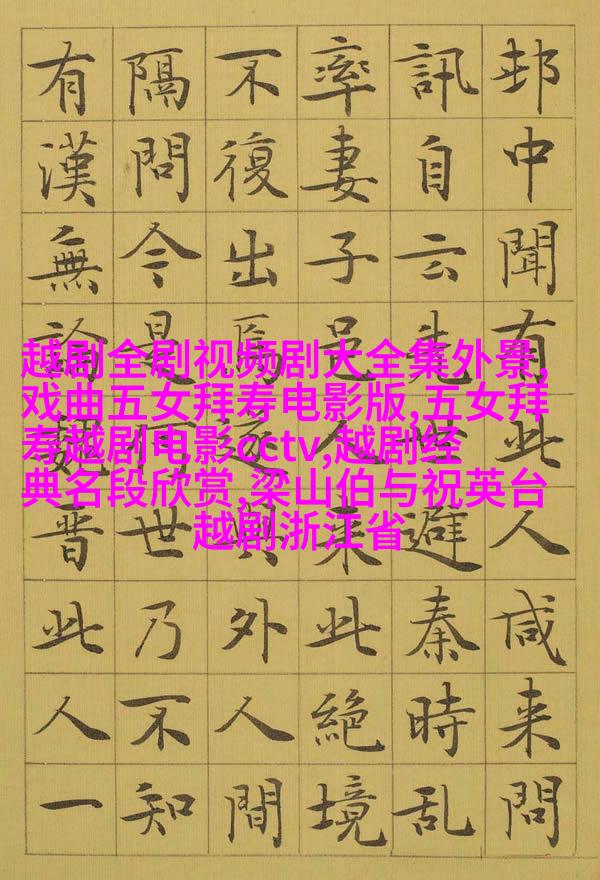 邨中聞有此人咸来問
訊自云先世避秦時乱
率妻子邑人来此絶境
不復出焉遂與外人間
隔問今是何世乃不知
有漢無論魏晉此人一
越剧全剧视频剧大全集外景,
戏曲五女拜寿电影版,五女拜
寿越剧电影cctv,越剧经
典名段欣赏,梁山伯与祝英台
越剧浙江省